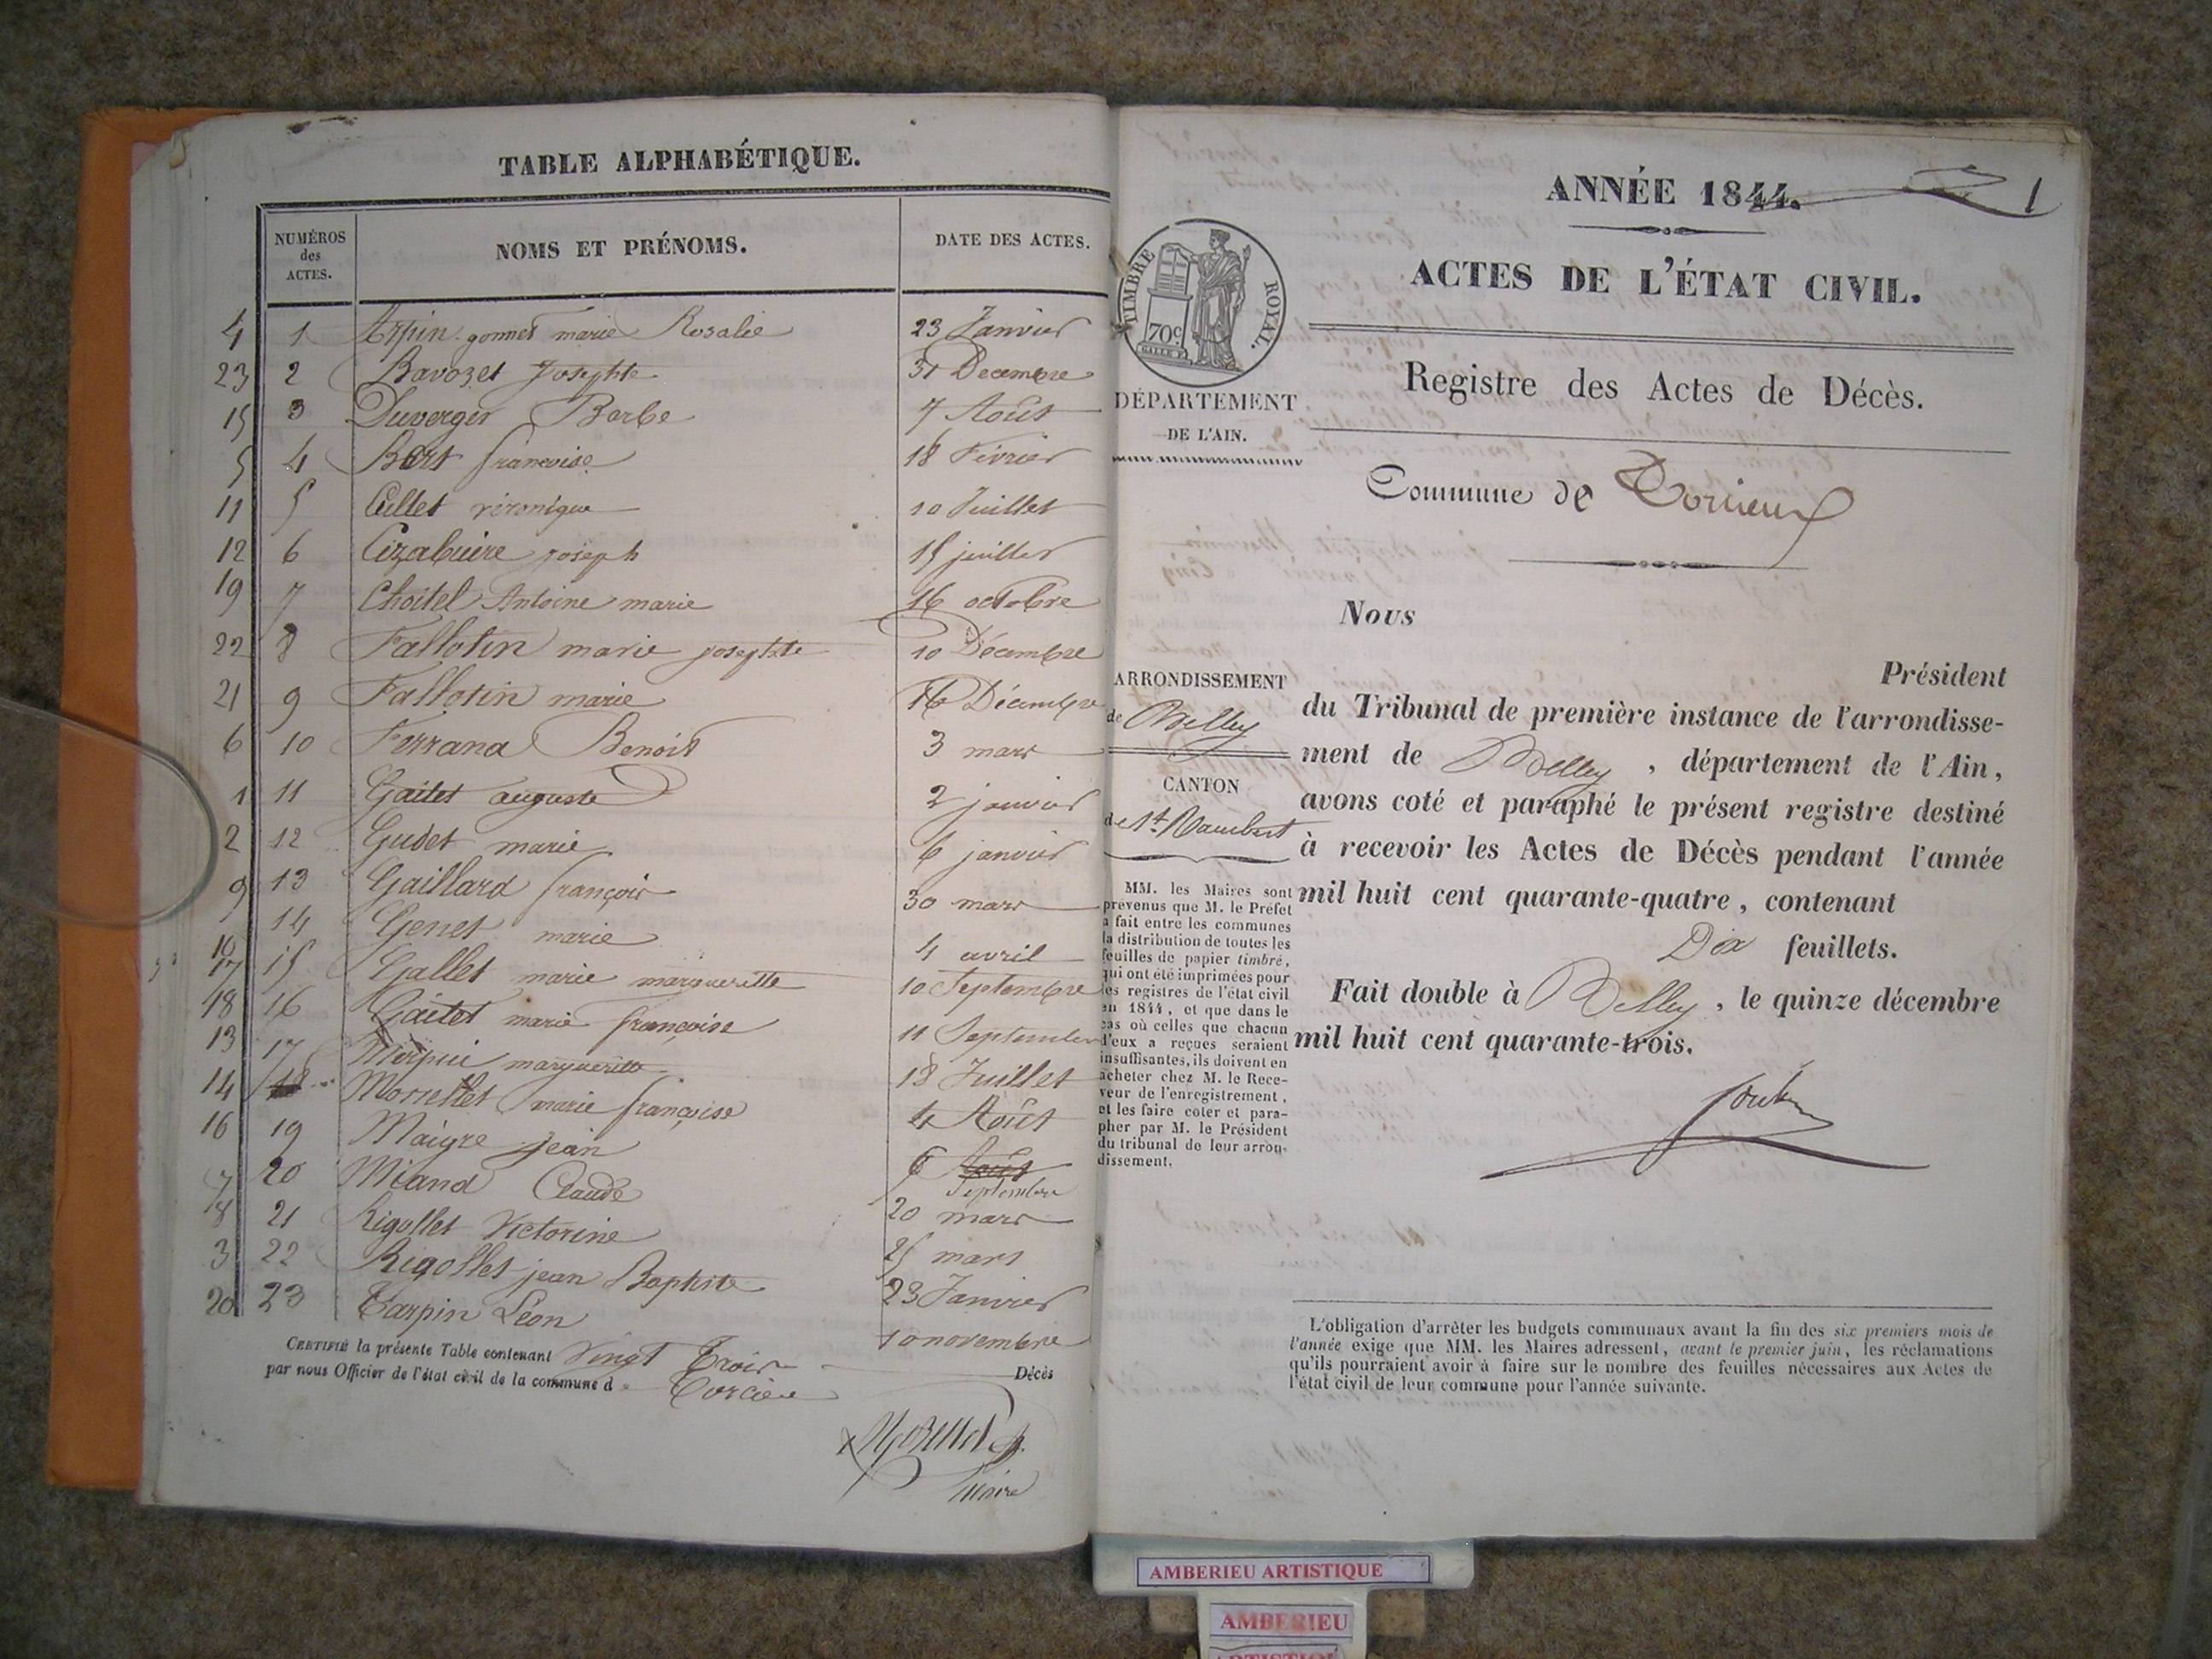 TABLE ALPHABÉTIQUE.
NUMÉROS des ACTES. NOMS ET PRÉNOMS. DATE DES ACTES.
4 1 Arpin gonnet marie Rosalie 23 Janvier
23 2 Bavozet Josephte 31 Decembre
15 3 Duverger Barbe 7 Août
5 4 Bert francoise 18 Février
11 5 Cullet véronique 10 Juillet
12 6 Cizabuire joseph 15 juillet
19 7 Choitel Antoine marie 16 octobre
22 8 Fallotin marie josephte 10 Décembre
21 9 Fallotin marie 16 Décembre
6 10 Ferrand Benoit 3 mars
1 11 Gaitet auguste 2 janvier
2 12 Gudet marie 6 janvier
9 13 Gaillard françois 30 mars
10 14 Genet marie 4 avril
17 15 Gallet marie margueritte 10 Septembre
18 16 Gaitet marie françoise 11 Septembre
13 17 marguerite 18 Juillet
14 18 marie françoise 4 Août
16 19 Maigre jean 6 Août Septembre
7 20 Miand Claude 20 mars
8 21 Rigollet Victorine 25 mars
3 22 Rigollet jean Baptiste 23 Janvier
20 23 Tarpin Léon 10 novembre
CERTIFIÉ la présente Table contenant Vingt Trois Décès
par nous Officier de l'état civil de la commune de Torcieu
Maire
ANNÉE 1844. 1
ACTES DE L'ÉTAT CIVIL.
TIMBRE ROYAL.
70c.
DÉPARTEMENT
DE L'AIN.
Registre des Actes de Décès.
Commune de Torcieux
Nous
Président
du Tribunal de première instance de l'arrondisse-
ment de Belley, département de l'Ain,
avons coté et paraphé le présent registre destiné
à recevoir les Actes de Décès pendant l'année
mil huit cent quarante-quatre, contenant
Dix feuillets.
Fait double à Belley, le quinze décembre
mil huit cent quarante-trois.
ARRONDISSEMENT
de Belley
CANTON
de St. Rambert
MM. les Maires sont
prévenus que M. le Préfet
a fait entre les communes
la distribution de toutes les
feuilles de papier timbré,
qui ont été imprimées pour
les registres de l'état civil
en 1844, et que dans le
cas où celles que chacun
d'eux a reçues seraient
insuffisantes, ils doivent en
acheter chez M. le Rece-
veur de l'enregistrement,
et les faire coter et para-
pher par M. le Président
du tribunal de leur arron-
dissement.
L'obligation d'arrêter les budgets communaux avant la fin des six premiers mois de
l'année exige que MM. les Maires adressent, avant le premier juin, les réclamations
qu'ils pourraient avoir à faire sur le nombre des feuilles nécessaires aux Actes de
l'état civil de leur commune pour l'année suivante.
AMBERIEU ARTISTIQUE
AMBERIEU
ARTISTIQUE